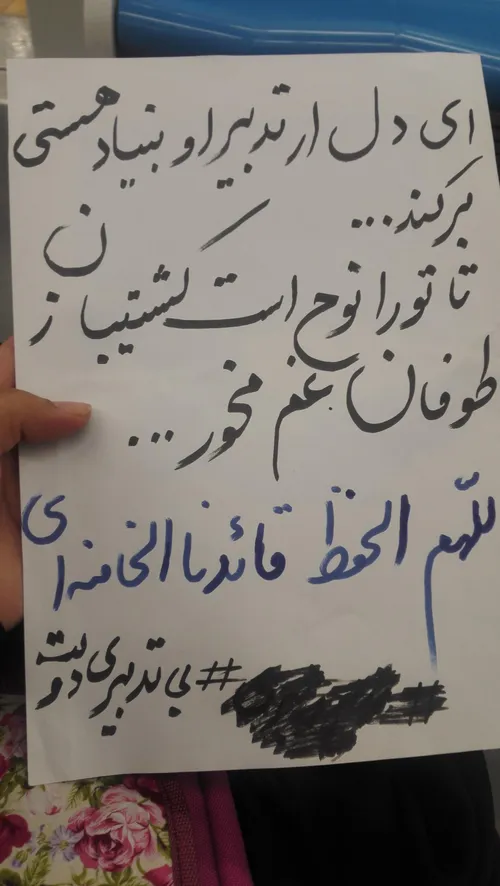 ای دل ار تدبیر او بنیاد هستی
برکند...
تا تو را نوح است کشتیبان ز
طوفان غم مخور...
للّهم الحفظ قائدنا الخامنه ای
#بی تدبیری دولت